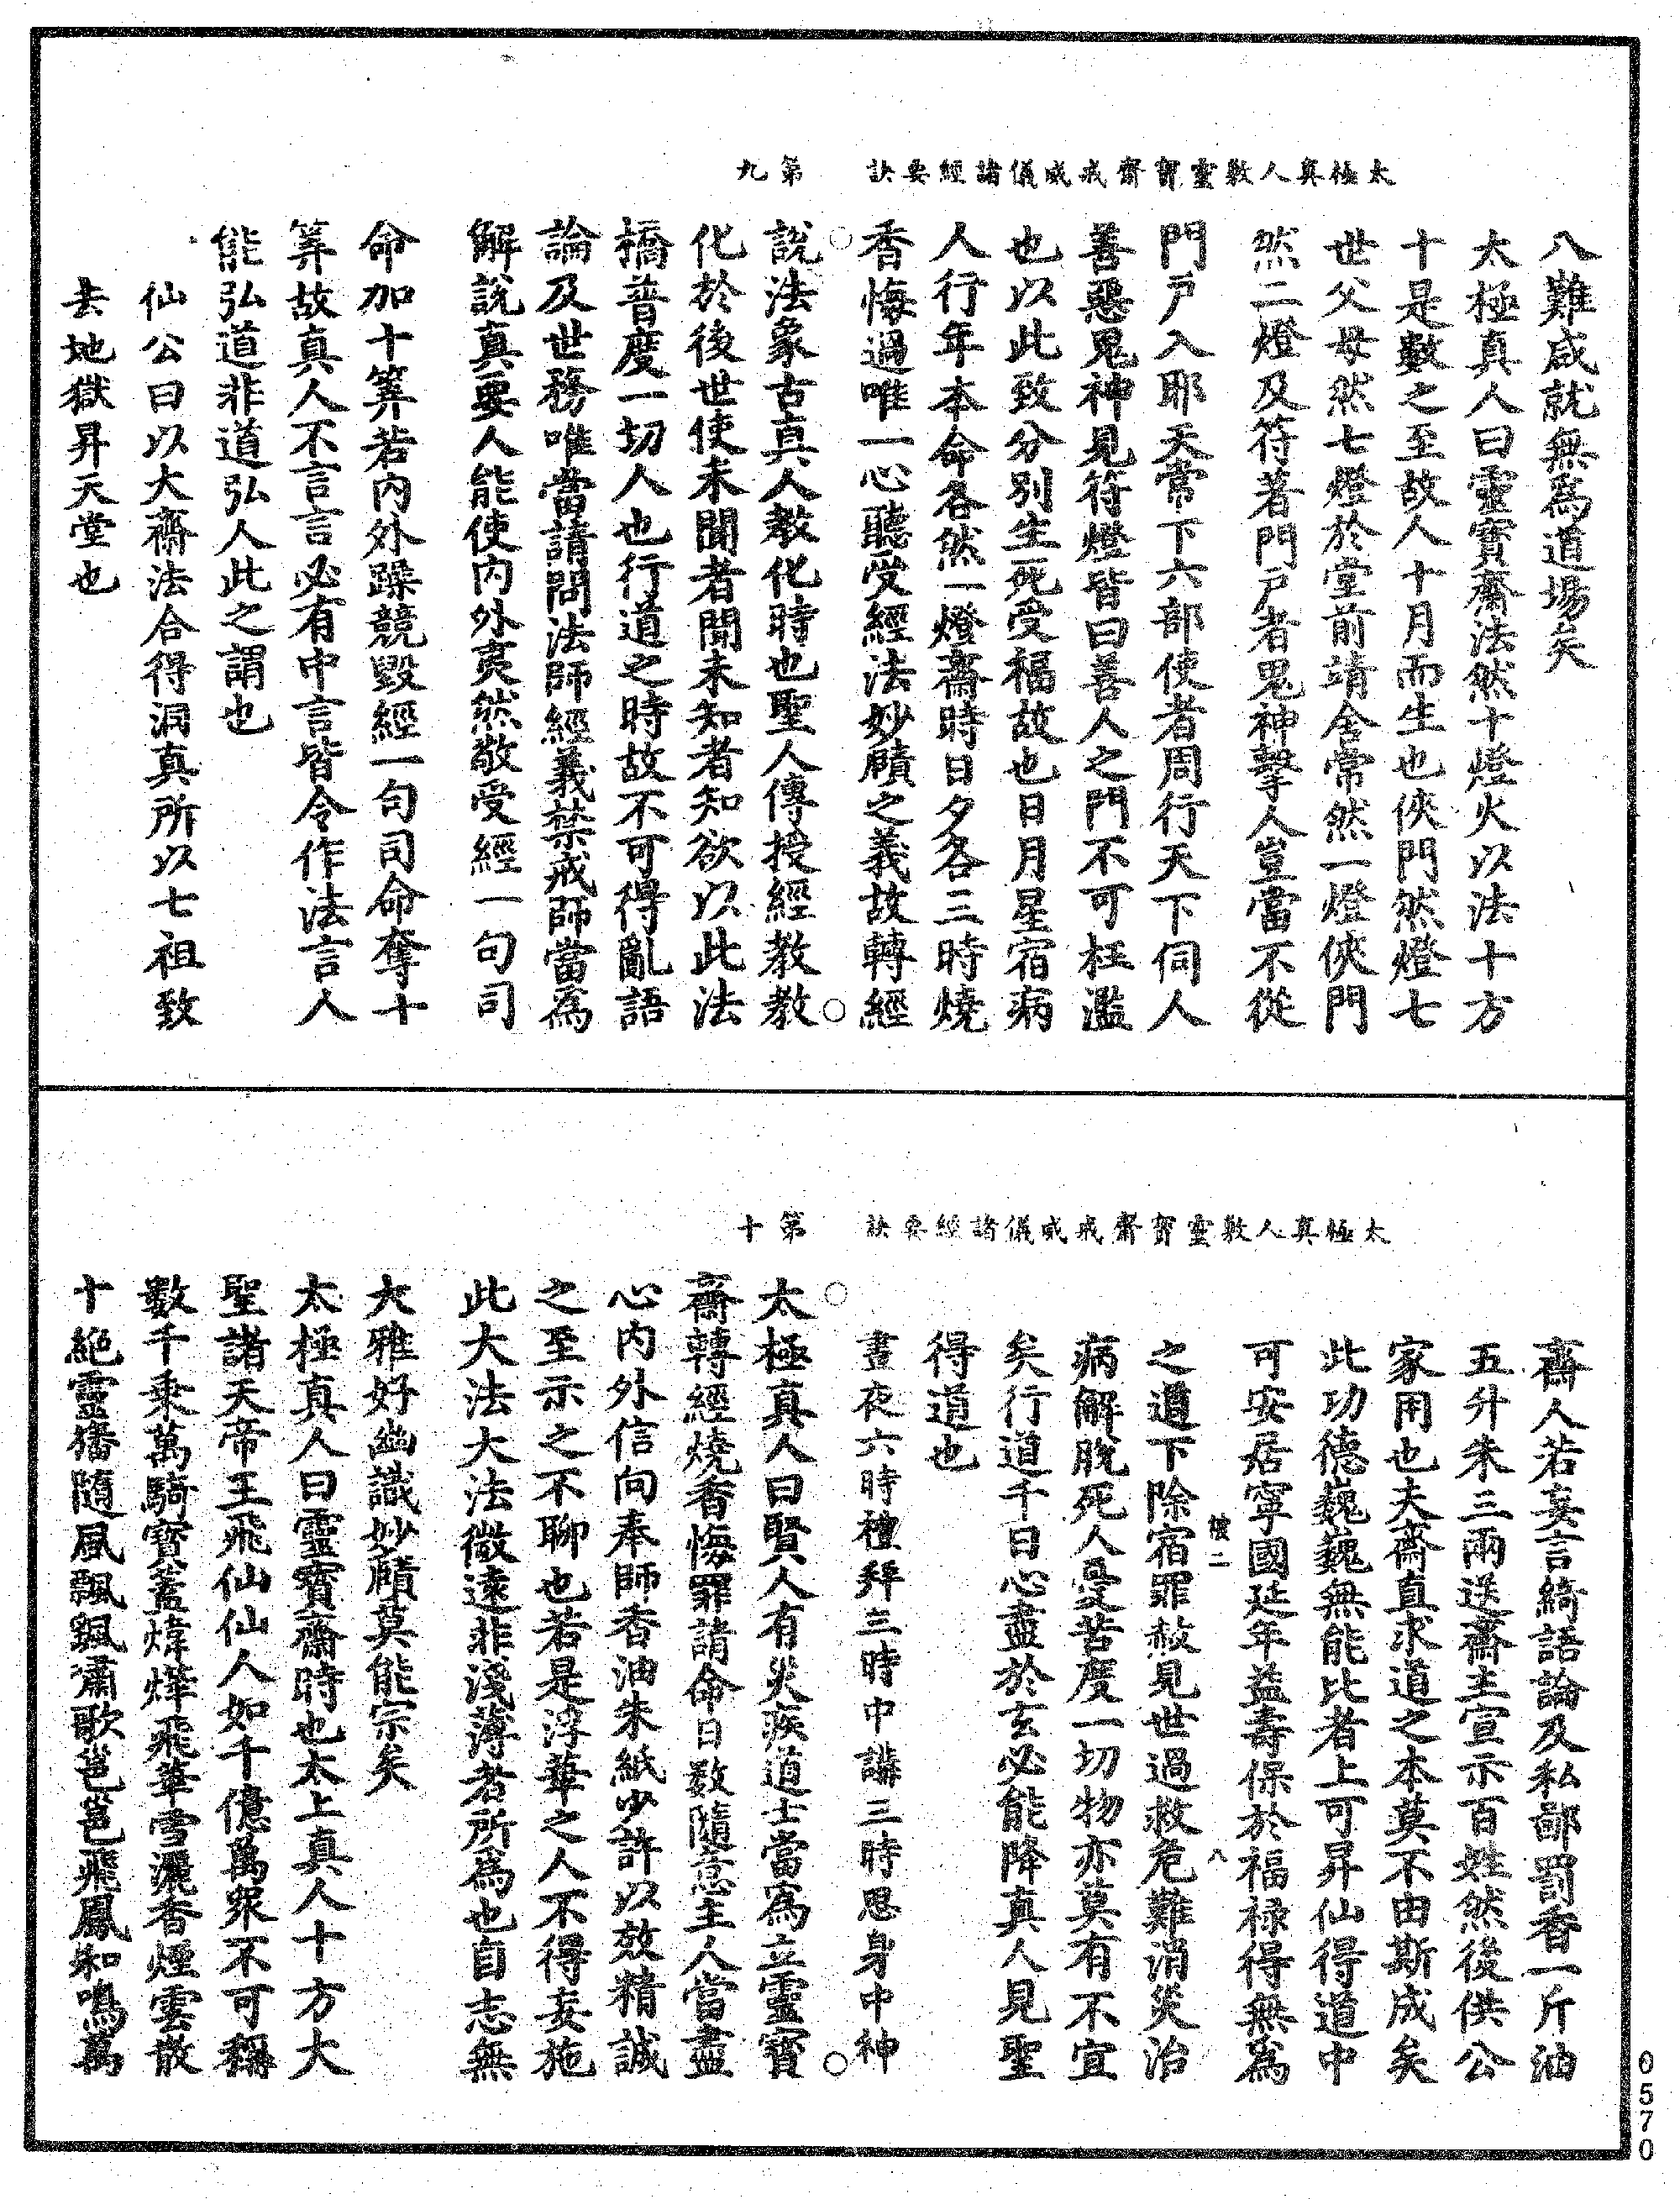 太極真人敷靈寶齋戒威儀諸經要訣　第九
八難咸就無為道場矣
太極真人曰靈寶齋法然十燈火以法十方
十是數之至故人十月而生也俠門然燈七
世父母然七燈於堂前靖舍常然一燈俠門
然二燈及符著門戶者鬼神擊人豈當不從
門戶入耶天常下六部使者周行天下伺人
善惡鬼神見符燈皆曰善人之門不可枉濫
也以此致分別生死受福故也日月星宿病
人行年本命各然一燈齋時日夕各三時燒
香悔過唯一心聽受經法妙賾之義故轉經
說法象古真人教化時也聖人傳授經教教
化於後世使未聞者聞未知者知欲以此法
橋普度一切人也行道之時故不可得亂語
論及世務唯當請問法師經義禁戒師當為
解說真要人能使內外夷然敬受經一句司
命加十筭若內外躁競毀經一句司命奪十
筭故真人不言言必有中言皆令作法言人
能弘道非道弘人此之謂也
仙公曰以大齋法合得洞真所以七祖致
去地獄昇天堂也
太極真人敷靈寶齋戒威儀諸經要訣　第十
齋人若妄言綺語論及私鄙罰香一斤油
五升朱三兩送齋主宣示百姓然後供公
家用也夫齋直求道之本莫不由斯成矣
此功德巍巍無能比者上可昇仙得道中
可安居寧國延年益壽保於福祿得無為
之道下除宿罪赦見世過救危難消災治
病解脫死人憂苦度一切物亦莫有不宜
矣行道千日心盡於玄必能降真人見聖
得道也
晝夜六時禮拜三時中講三時思身中神
太極真人曰賢人有災疾道士當為立靈寶
齋轉經燒香悔罪請命日數隨意主人當盡
心內外信向奉師香油朱紙少許以效精誠
之至示之不聊也若是浮華之人不得妄施
此大法大法微遠非淺薄者所為也自志無
大雅好幽識妙賾莫能宗矣
太極真人曰靈寶齋時也太上真人十方大
聖諸天帝王飛仙仙人如千億萬眾不可稱
數千乘萬騎寶蓋煒燁飛華雪灑香煙雲散
十絕靈旛隨風飄颻嘯歌邕邕飛鳳和鳴萬
二
八
0570